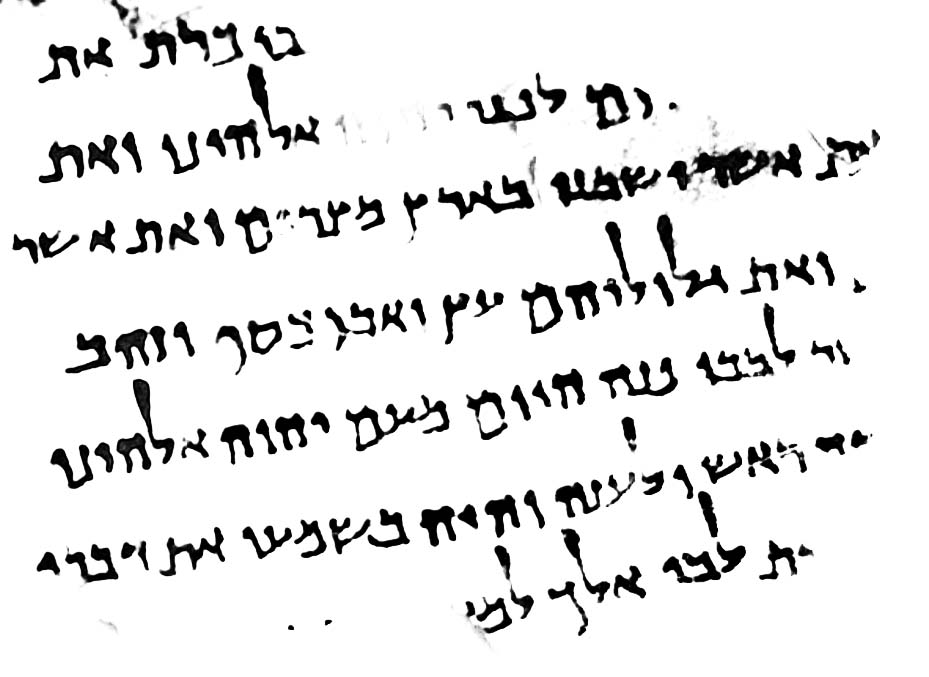 את
ום לפני אלהינו ואת
אשר ישבנו בארץ מצרים ואת אשר
ואת גלוליהם עץ ואבן כסף וזהב
לבבו פנה היום מעם יהוה אלהינו
ראש ולענה והיה בשמעו את דברי
ת לבי אלך למ